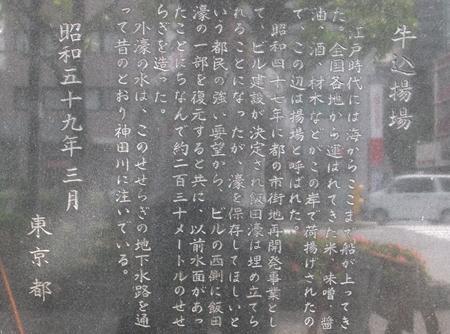 牛込揚場
江戸時代には海からここまで船が上ってき
た。全国各地から運ばれてきた米、味噌、醤
油、酒、材木などがこの岸で荷揚げされたの
で、この辺は揚場と呼ばれた。
昭和四十七年に都の市街地再開発事業とし
て、ビル建設が決定され飯田濠は埋め立てら
れることになったが、濠を保存してほしいと
いう都民の強い要望から、ビルの西側に飯田
濠の一部を復元すると共に、以前水面があっ
たことにちなんで約二百三十メートルのせせ
らぎを造った。
外濠の水は、このせせらぎの地下水路を通
って昔のとおり神田川に注いでいる。
昭和五十九年三月
東京都